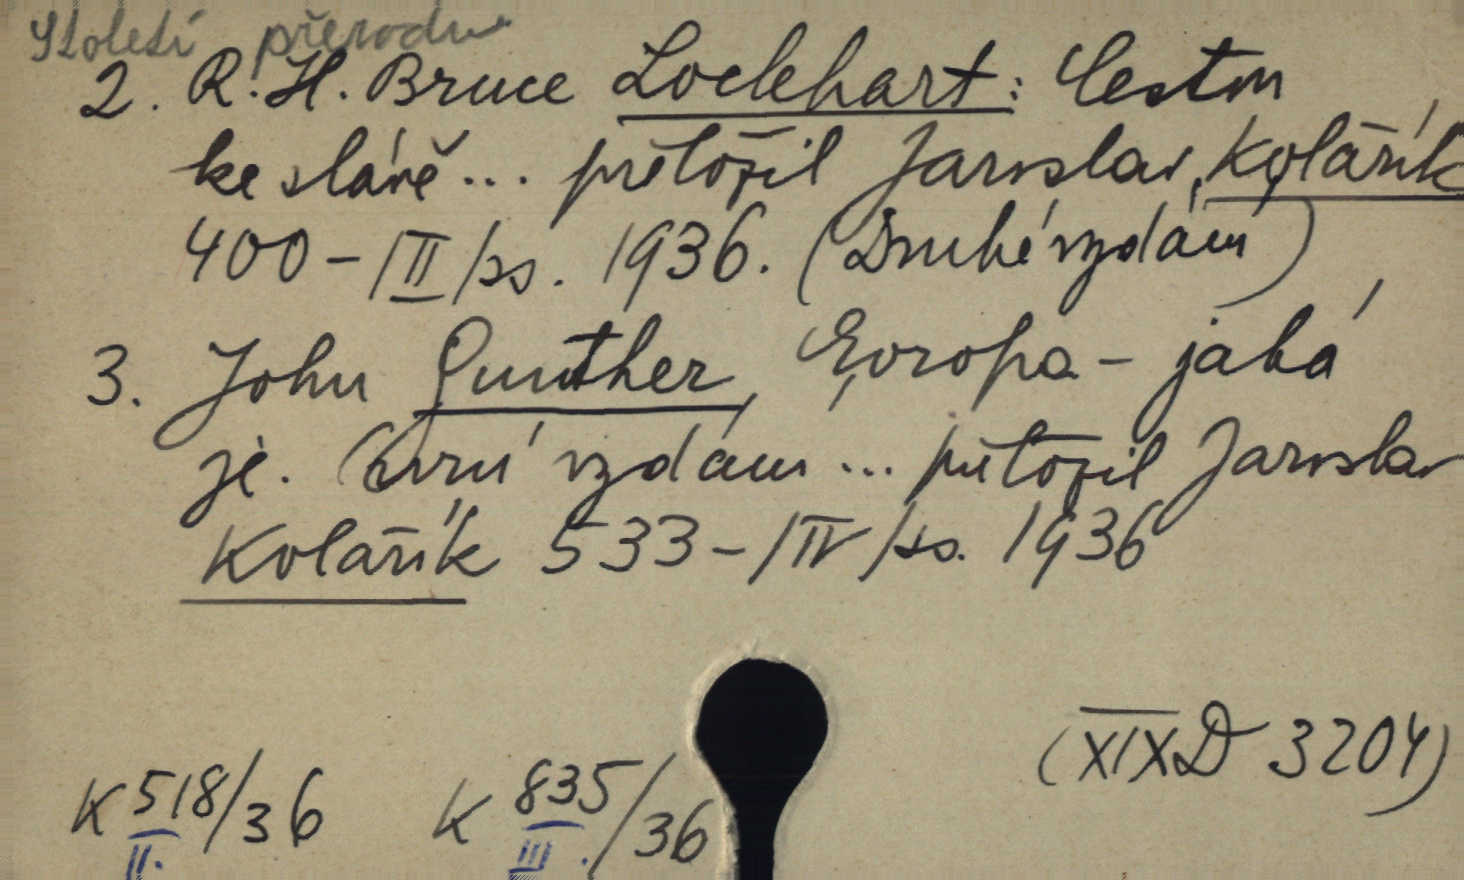 Století přerodu
2. R. H. Bruce Lockhart: Cestou
ke slávě... přeložil Jaroslav Kolařík
400 - /II/ ss. 1936. (Druhé vydání)
3. John Gunther, Evropa - jaká
je. vydání ... přeložil Jaroslav
Kolařík 533 - /IV/ ss. 1936
(XIX D 3204)
K 518/36 K 835/36
II. III.